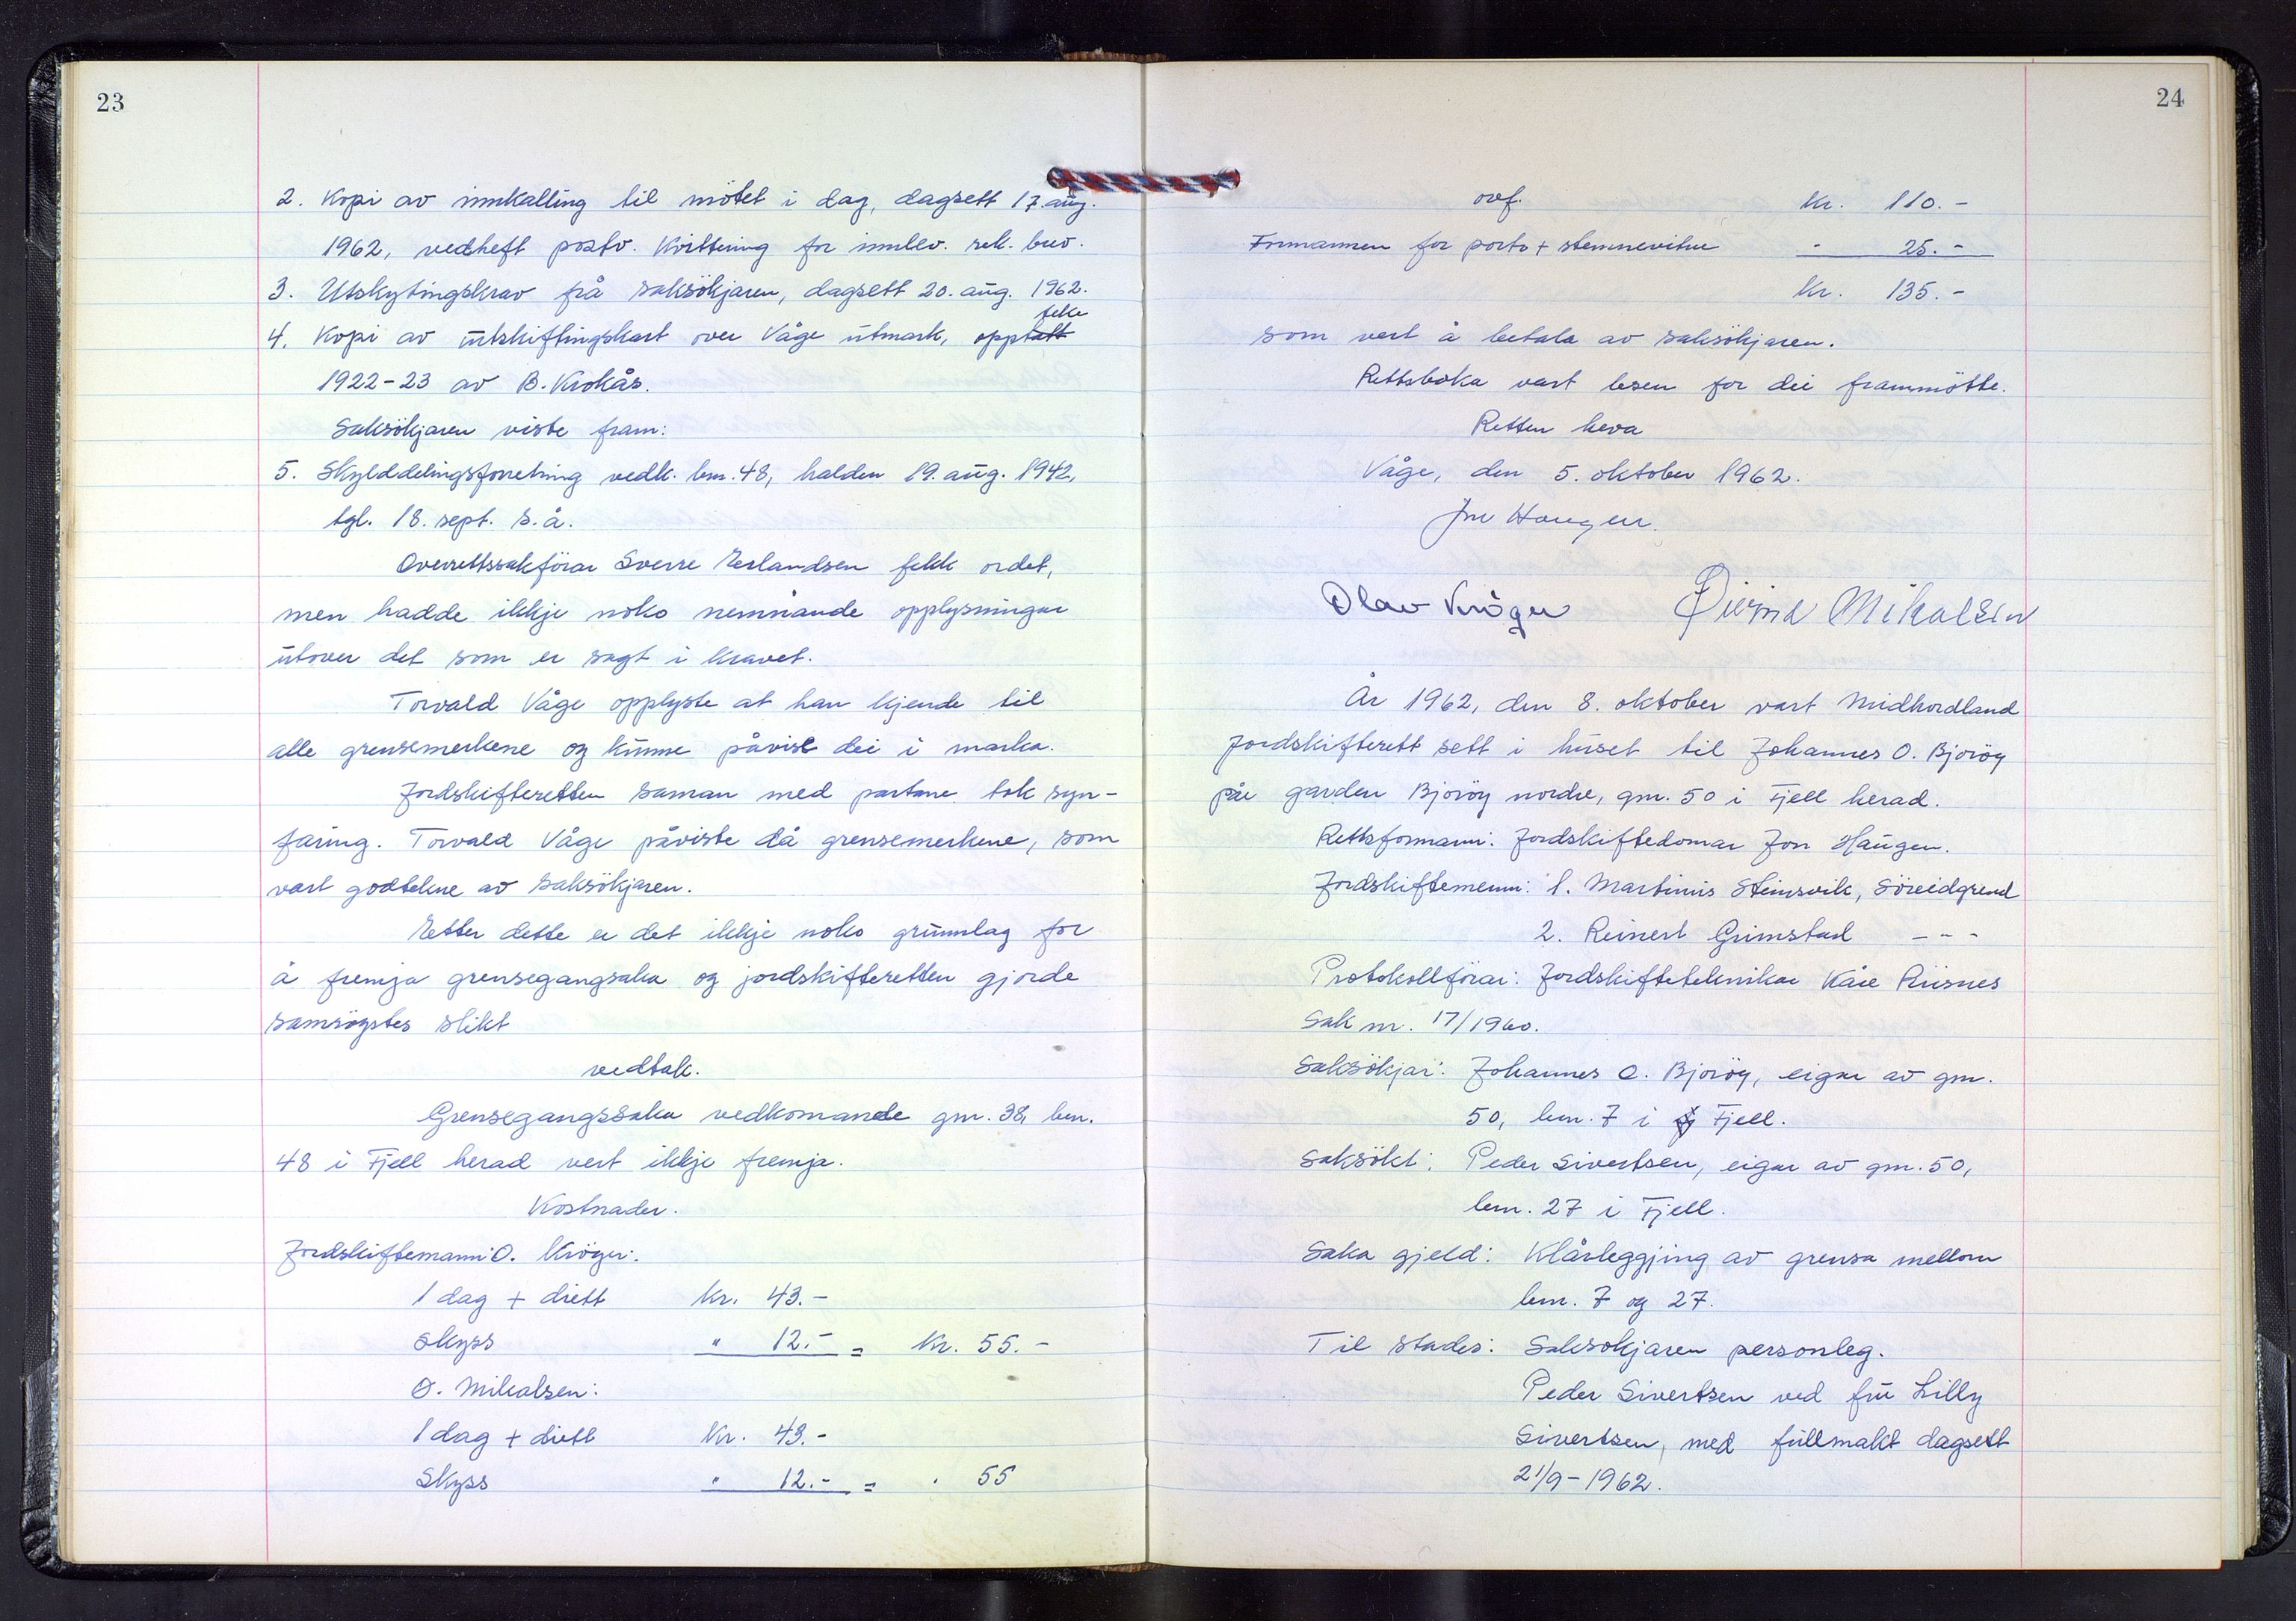 23
2. Kopi av innkalling til mötet i dag, dagsett 17. aug.
1962, vedheft postv. Kvittering for innlev. rek. brev.
3. Utskytingskrav frå saksökjaren, dagsett 20. aug. 1962.
teke
4. Kopi av utskiftingskart over Våge utmark, opptatt
1922-23 av B. Krokås.
Saksökjaren viste fram:
5. Skylddelingsforretning vedk. bnr. 48, halden 19. aug. 1942,
tgl. 18. sept. s.å.
Overrettssakförar Sverre Erlandsen fekk ordet,
men hadde ikkje noko nemnande opplysningar
utover det som er sagt i kravet.
Torvald Våge opplyste at han kjende til
alle grensemerkene og kunne påvise dei i marka.
Jordskifteretten saman med partane tok syn-
faring. Torvald Våge påviste då grensemerkene, som
vart godtekne av saksökjaren.
Etter dette er det ikkje noko grunnlag for
å fremja grensegangsaka og jordskifteretten gjorde
samröystes slikt
vedtak.
Grensegangssaka vedkomande gnr. 38, bnr.
48 i Fjell herad vert ikkje fremja.
Kostnader.
Jordskiftemann: O. Kröger:
1 dag + diett kr. 43.-
skyss " 12.- = kr. 55.-
Ö. Mikalsen:
1 dag + diett kr. 43.-
Skyss " 12.- = " 55
24
ovf. kr. 110.-
Formannen for porto + stemnevitne " 25.-
kr. 135.-
som vert å betala av saksökjaren.
Rettsboka vart lesen for dei frammötte.
Retten heva
Våge, den 5. oktober 1962.
Jon Haugen.
Olav Kröger Øivind Mikalsen
År 1962, den 8. oktober vart Midhordland
jordskifterett sett i huset til Johannes O. Bjoröy
på garden Bjoröy nordre, gnr. 50 i Fjell herad.
Rettsformann: Jordskiftedomar Jon Haugen.
Jordskiftemenn: 1. Martinus Steinsvik, Söreidgrend
2. Reinert Grimstad - - -
Protokollförar: Jordskifteteknikar Kåre Riisnes
Sak nr. 17/1960.
Saksökjar: Johannes O. Bjoröy, eigar av gnr.
50, bnr. 7 i Fjell.
Saksökt: Peder Sivertsen, eigar av gnr. 50,
bnr. 27 i Fjell.
Saka gjeld: Klårleggjing av grensa mellom
bnr. 7 og 27.
Til stades: Saksokjaren personleg.
Peder Sivertsen ved fru Lilly
Sivertsen, med fullmakt dagsett
21/9-1962.